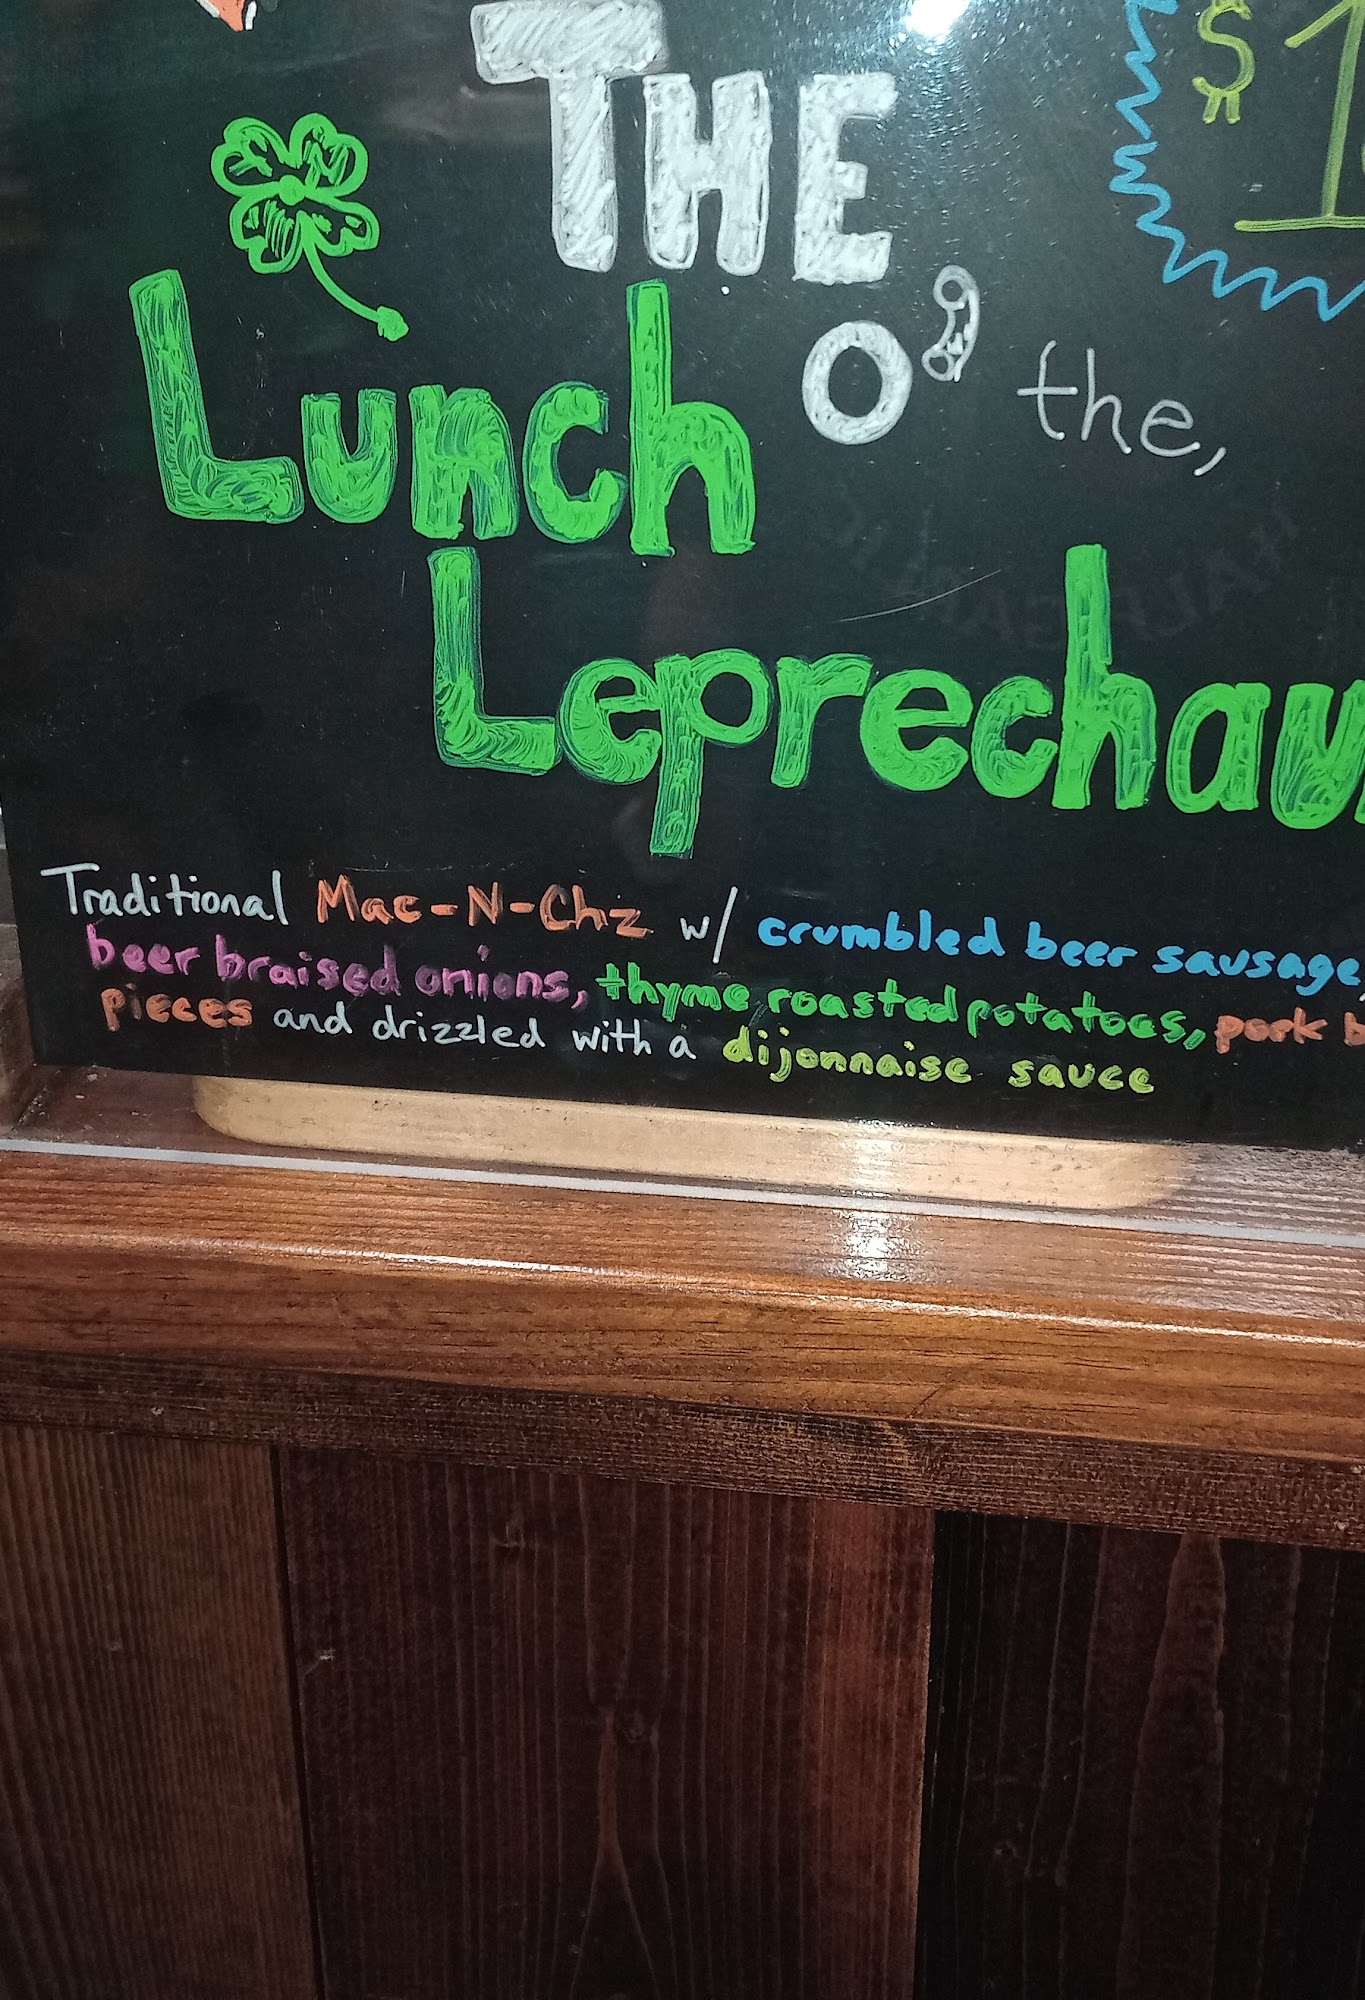 THE
$1
Lunch O' the,
Leprechau
Traditional Mac-N-Chz w/ crumbled beer sausage,
beer braised onions, thyme roasted potatoes, pork b
pieces and drizzled with a dijonnaise sauce